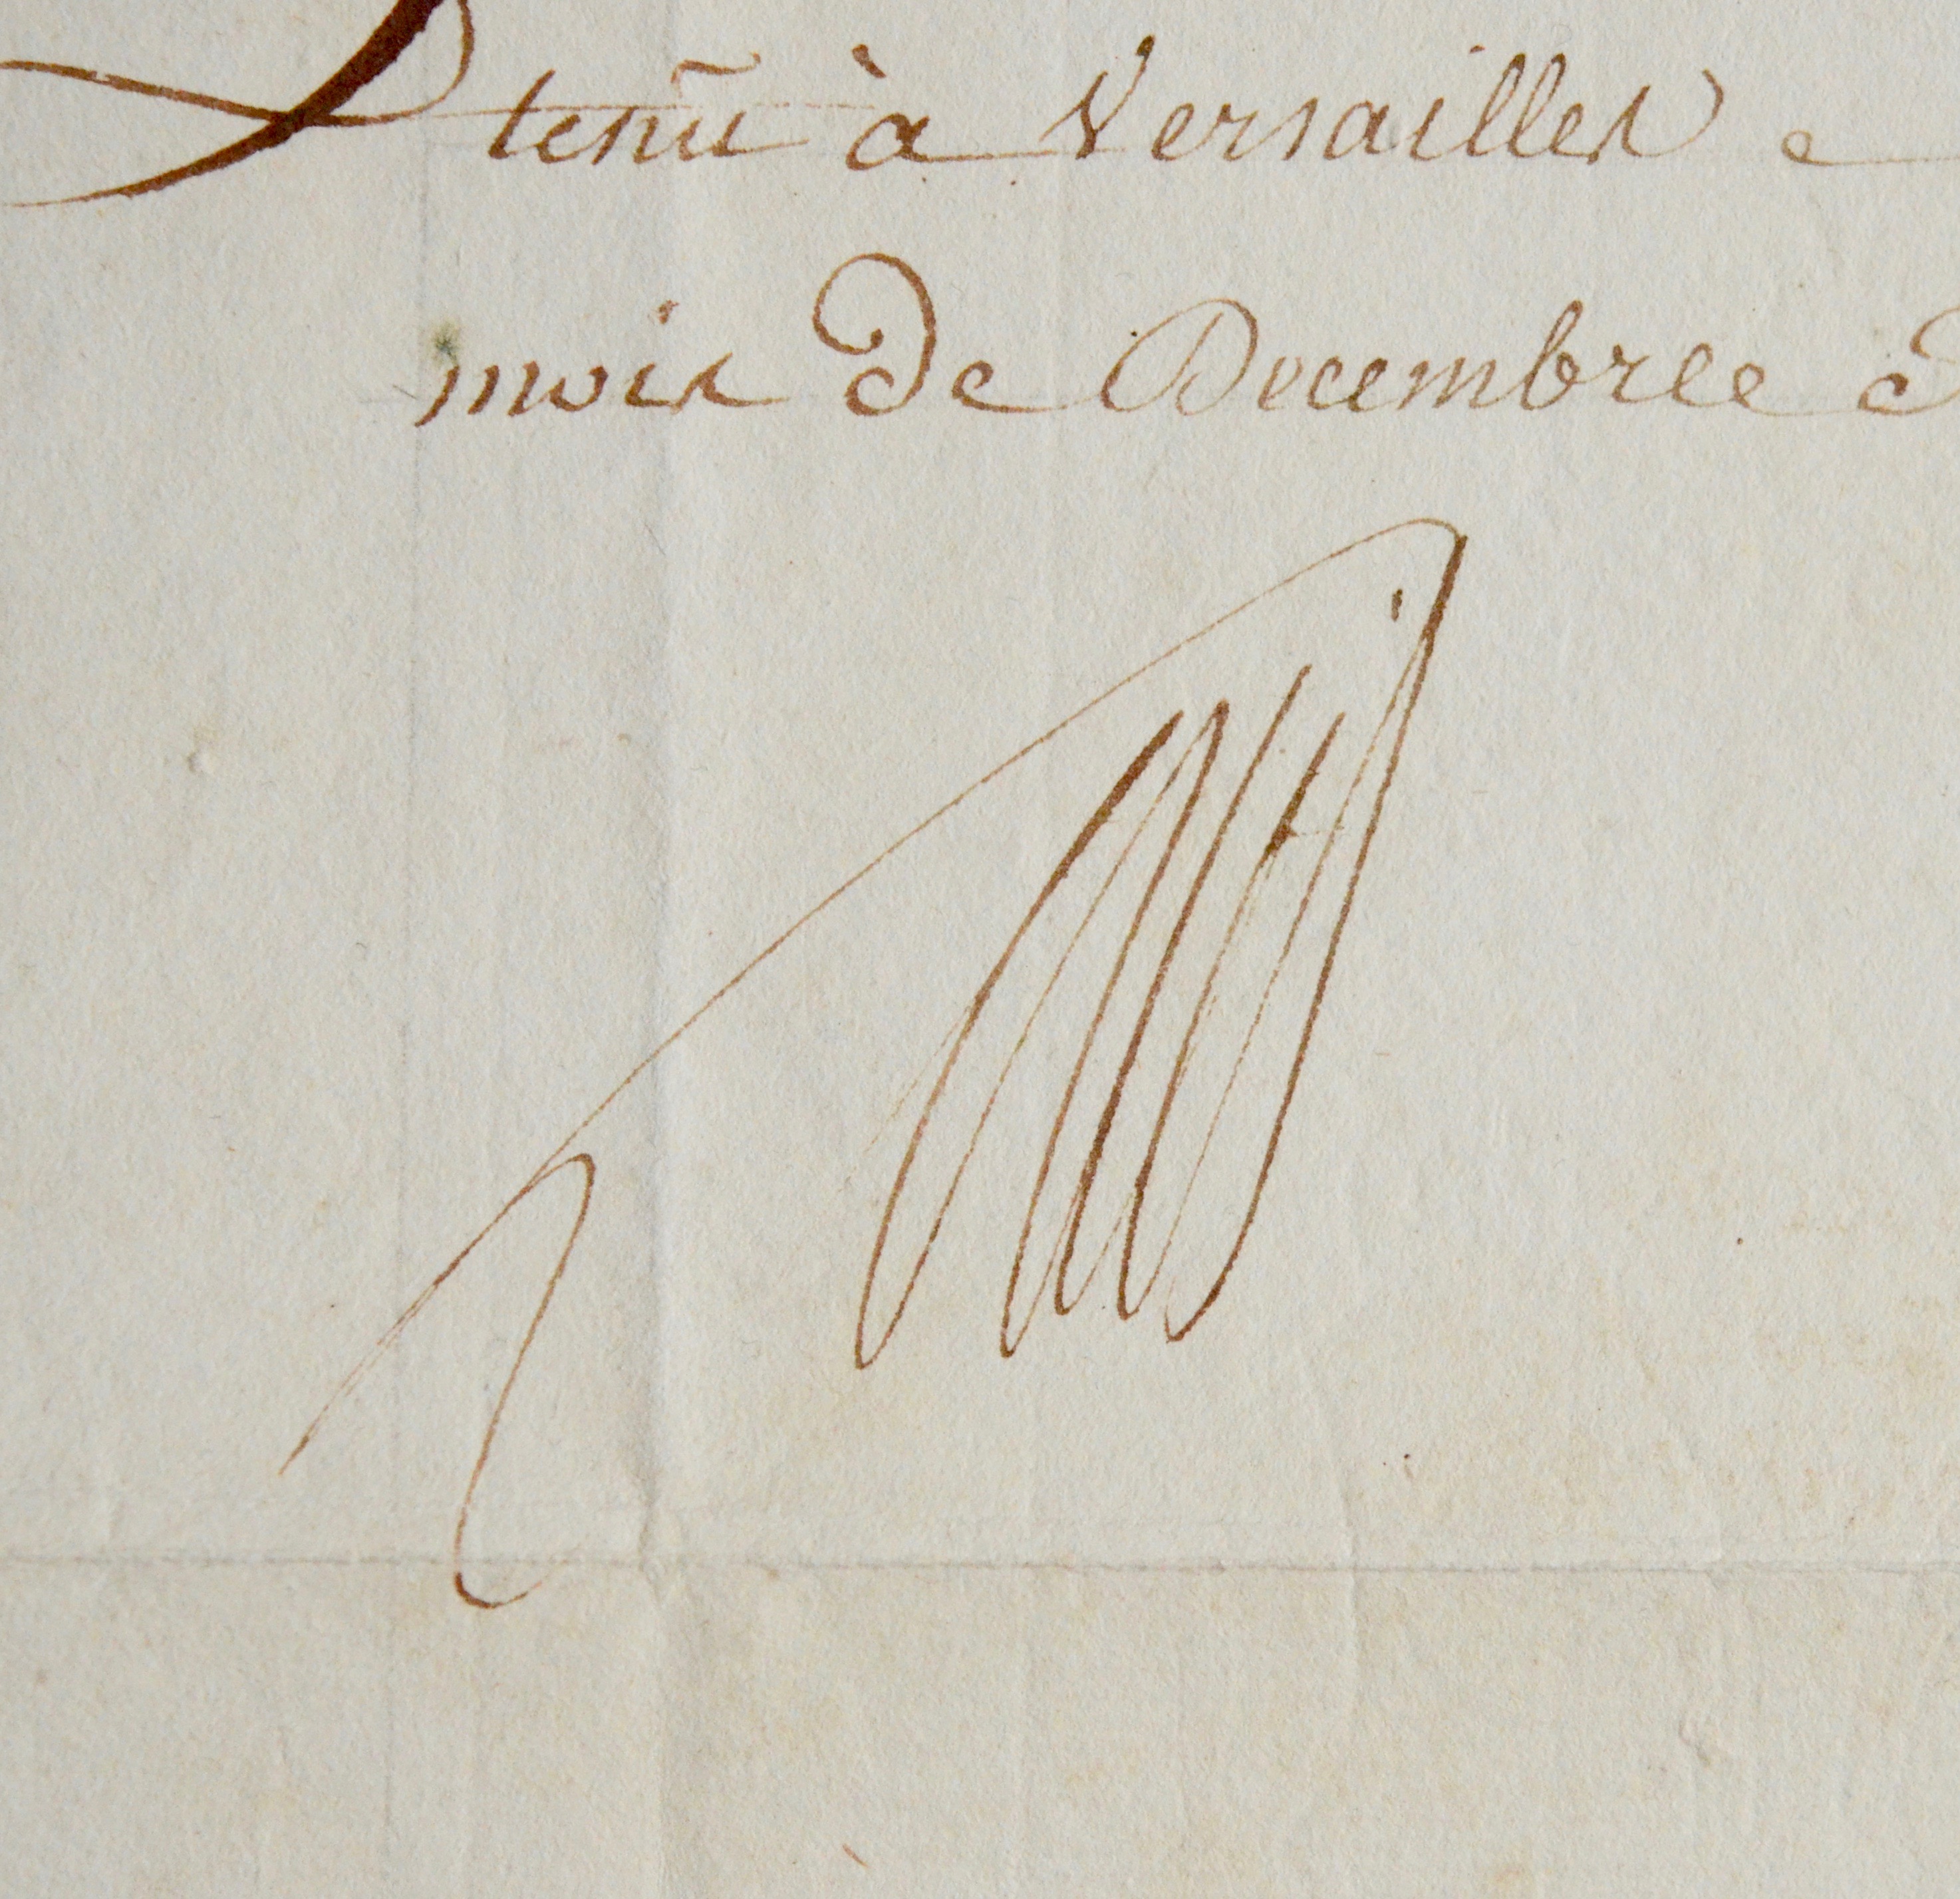 tenu à Versailles
mois de Decembre